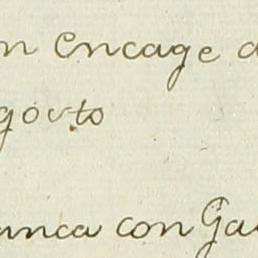 n encage d
gosto
anca con Ga